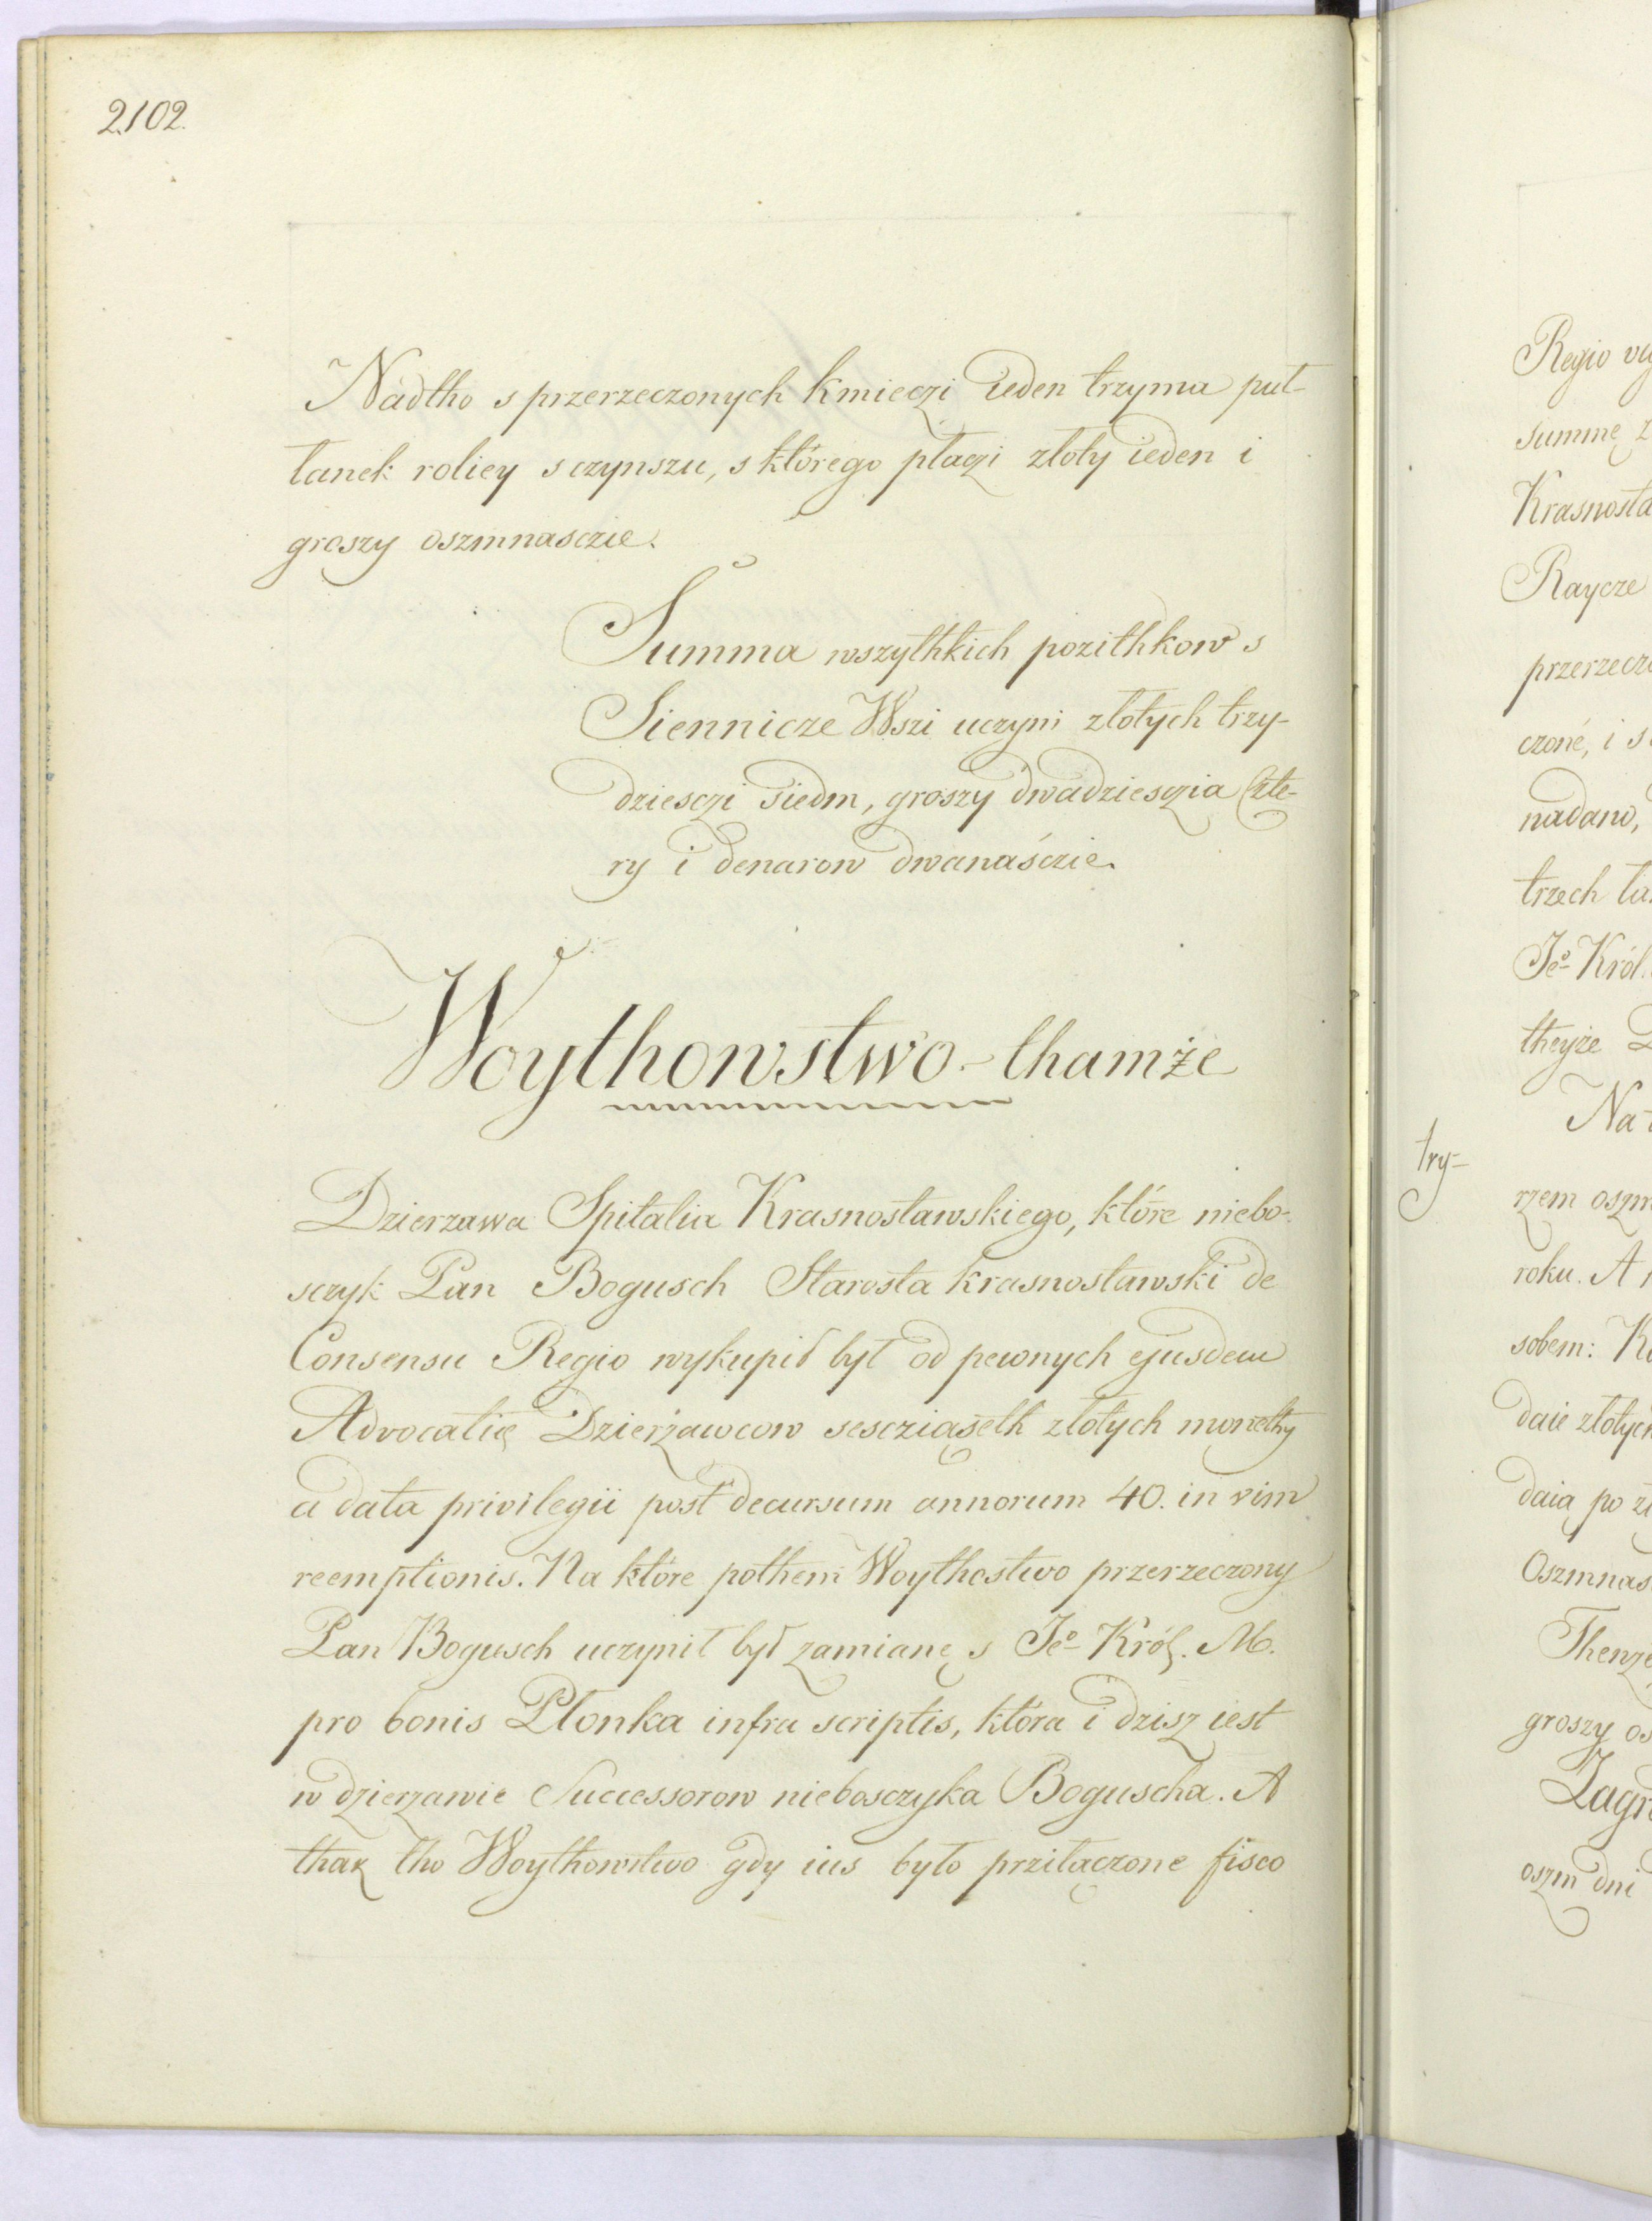 2102.
Nadtho s przerzeczonych kmieczi ieden trzyma puł-
łanek roliey s czynszu, s którego płaczi złoty ieden i
groszy oszmnasczie.
Summa wszythkich pozithkow s
Siennicze Wszi uczyni złotych trzy-
dziesczi siedm, groszy dwadziesczia Czte-
ry i denarow dwanaśczie.
Woythowstwo-thamże
Dzierzawa Spitalia Krasnostawskiego, które niebo-
sczyk Pan Bogusch Starosta krasnostawski de
Consensu Regio wykupił był od pewnych ejusdem
Advocatię Dzierżawcow sescziąseth złotych monethy
a data privilegii post decursum annorum 40. in vim
reemptionis. Na które pothem Woythostwo przerzeczony
Pan Bogusch uczynił był zamianę s Jeo Król. M.
pro bonis Płonka infra scriptis, która i dzisz iest
w dzierzawie Successorow niebosczyka Boguscha. A
thak tho Woythowstwo gdy ius było prziłączone fisco
Regio
summę
Krasnosta
Raycze
przerzecz
czoné, i s
nadano,
trzech
Jeo Król.
theyże
Na
try-
rzem oszm
roku. A
sobem:
daie złotych
daią po
Oszmnas
Thenże
groszy os
Zagr
oszm dni